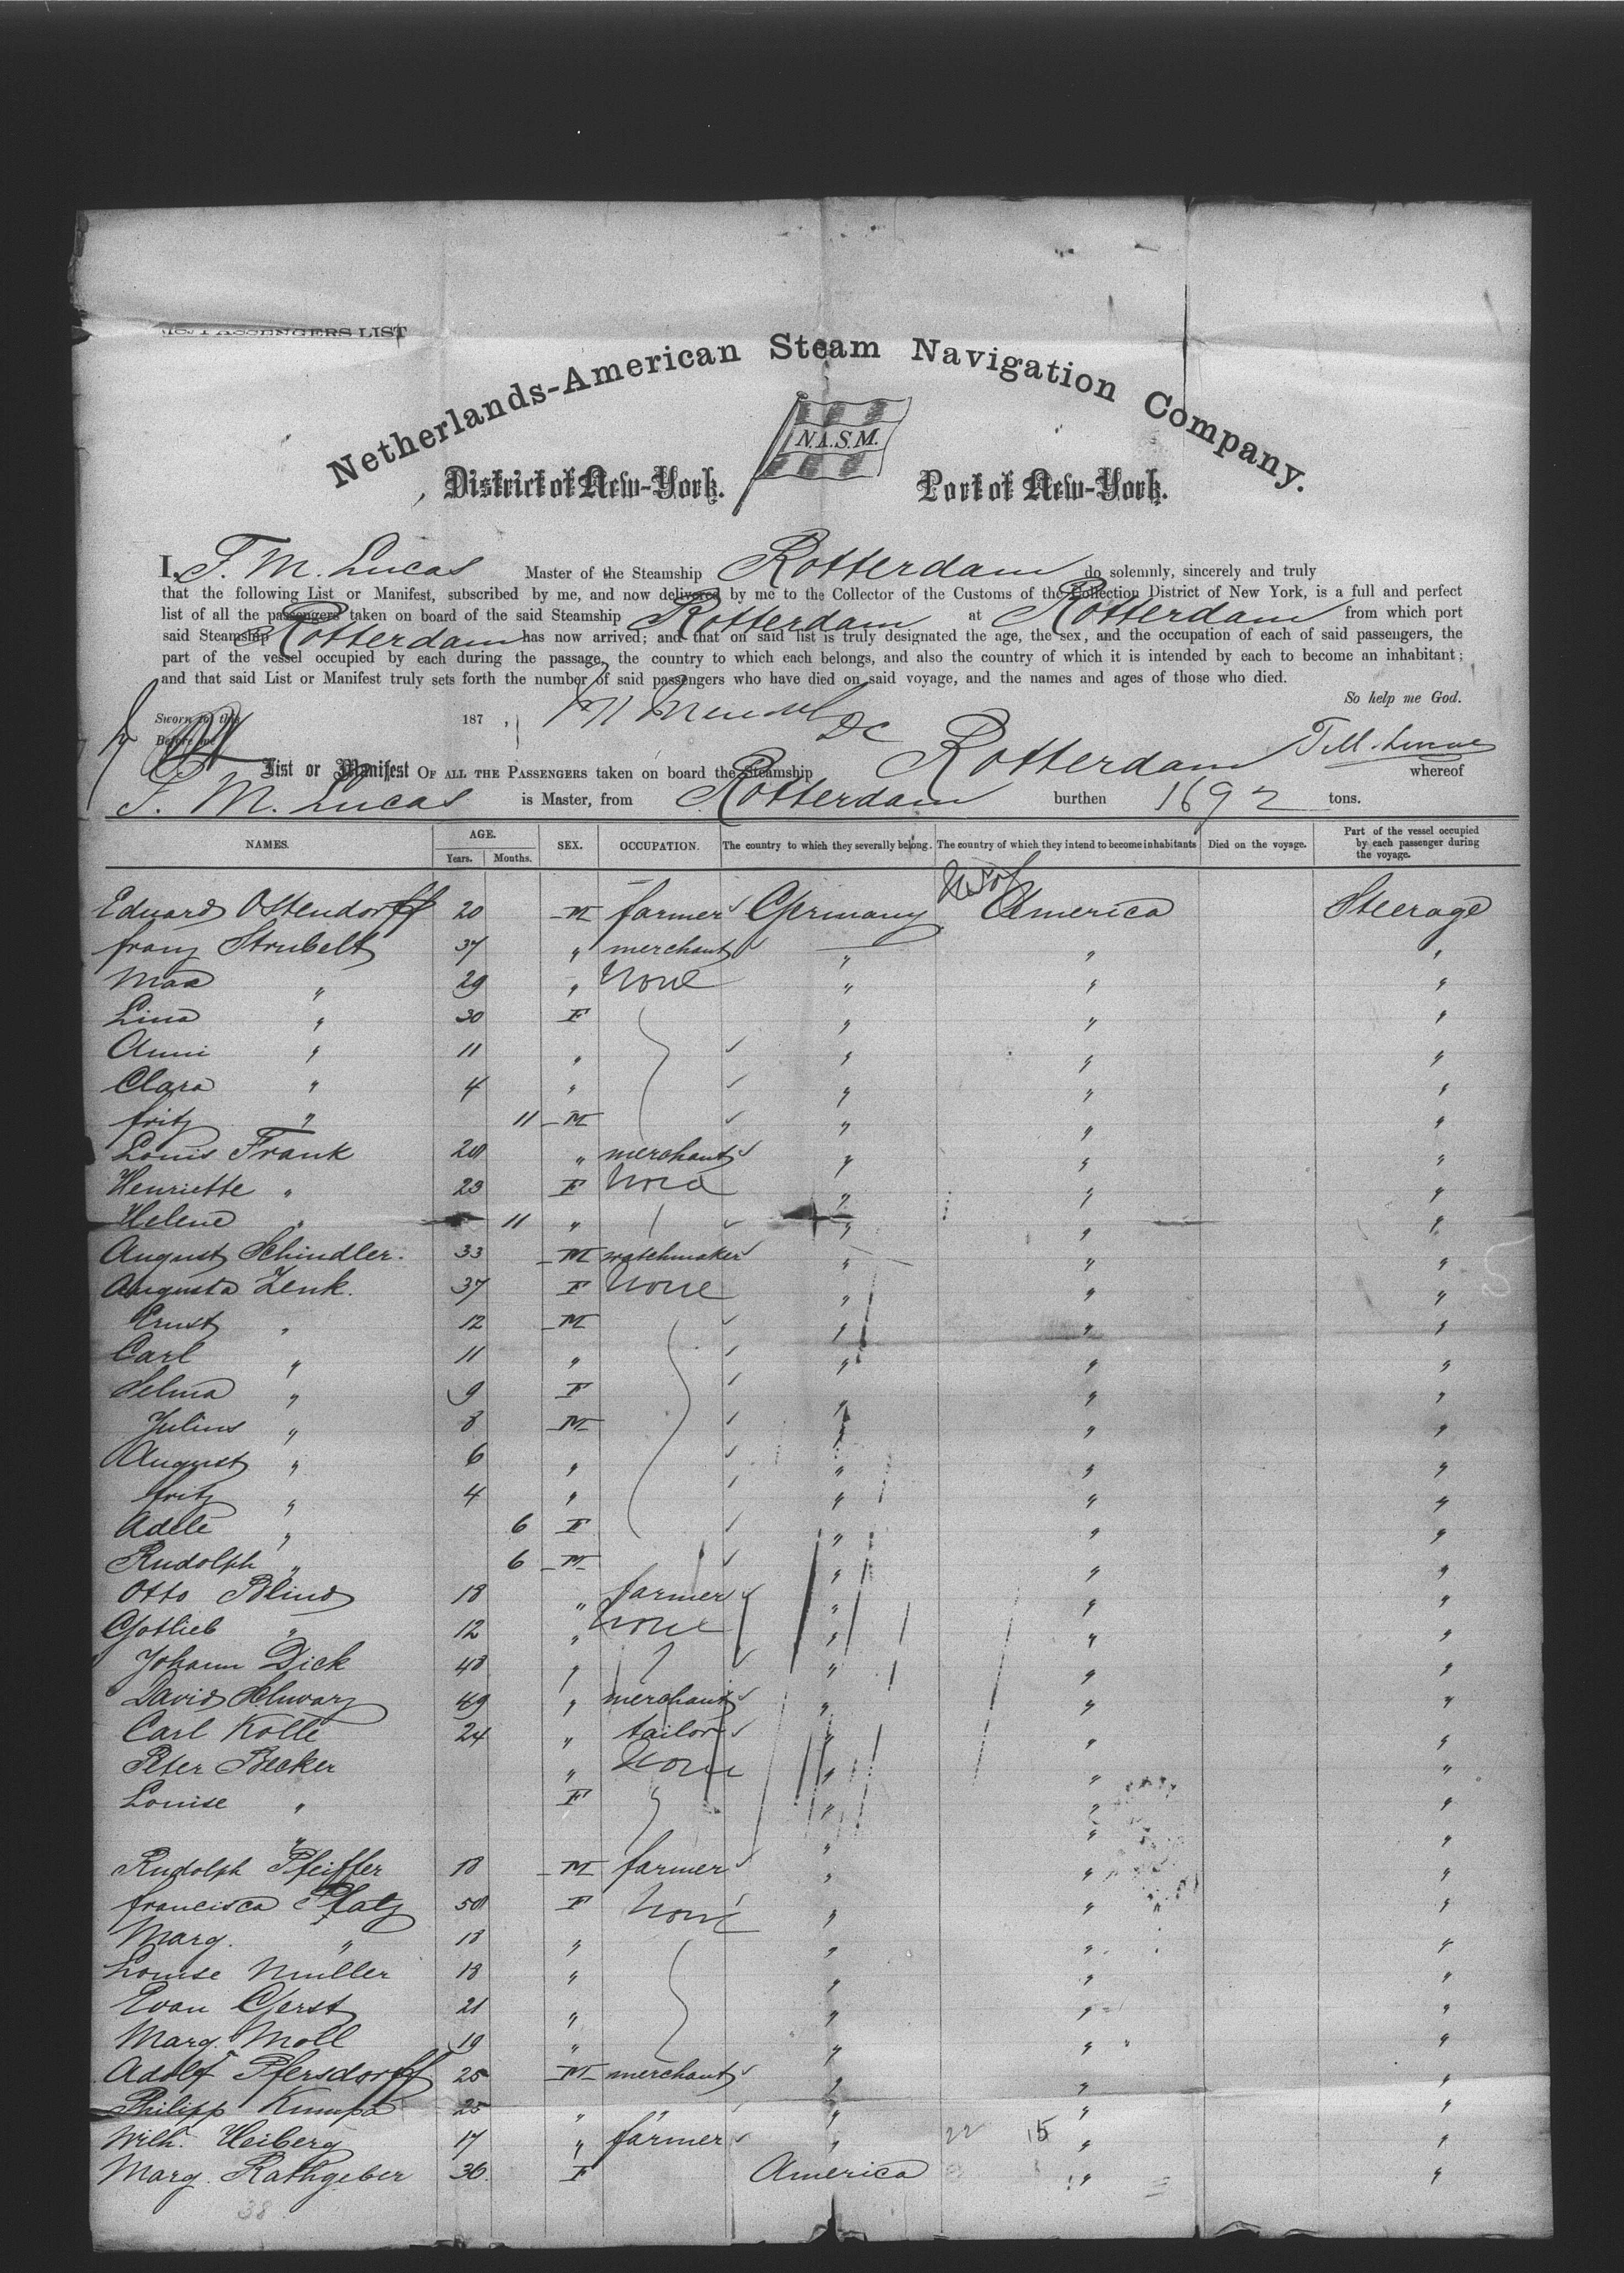 PASSENGERS LIST
Netherlands-American Steam Navigation Company.
N.A.S.M.
District of New-York. Port of New-York.
I, T. M. Lucas Master of the Steamship Rotterdam do solemnly, sincerely and truly
that the following List or Manifest, subscribed by me, and now delivered by me to the Collector of the Customs of the Collection District of New York, is a full and perfect
list of all the passengers taken on board of the said Steamship Rotterdam at Rotterdam from which port
said Steamship Rotterdam has now arrived; and that on said list is truly designated the age, the sex, and the occupation of each of said passengers, the
part of the vessel occupied by each during the passage, the country to which each belongs, and also the country of which it is intended by each to become an inhabitant;
and that said List or Manifest truly sets forth the number of said passengers who have died on said voyage, and the names and ages of those who died.
So help me God.
Sworn to this 187 ,
Before me
List or Manifest OF ALL THE PASSENGERS taken on board the Steamship Rotterdam whereof
T. M. Lucas is Master, from Rotterdam burthen 1692 tons.
NAMES. AGE. SEX. OCCUPATION. The country to which they severally belong. The country of which they intend to become inhabitants Died on the voyage. Part of the vessel occupied by each passenger during the voyage.
Years. Months.
Eduard Ostendorff 20 M farmer Germany America Steerage
franz Strubelt 37 " merchant " " "
Max " 29 " None " " "
Lina " 30 F " " "
Anni " 11 " " " "
Clara " 4 " " " "
fritz " 11 M " " "
Louis Frank 28 " merchant " " "
Henriette " 23 F None " " "
Helene " 11 " " " "
August Schindler. 33 M watchmaker " " "
Augusta Zenk. 37 F None " " "
Ernst " 12 M " " "
Carl " 11 " " " "
Selma " 9 F " " "
Julius " 8 M " " "
August " 6 " " " "
fritz " 4 " " " "
Adele " 6 F " " "
Rudolph " 6 M " " "
Otto Blind 18 " farmer " " "
Gotlieb " 12 " None " " "
Johann Dick 48 " " " "
David Schwarz 49 " merchant " " "
Carl Kolle 24 " tailor " " "
Peter Becker " None " " "
Louise " F " " "
" " " "
Rudolph Pfeiffer 18 M farmer " " "
francisca Platz 58 F None " " "
Marg. " 18 " " " "
Louise Muller 18 " " " "
Evan Gerst 21 " " " "
Marg. Moll 19 " " " "
Adolf Pfersdorff 25 M merchant " " "
Philipp Kumpa 25 " " " " "
Wilh. Heiberg 17 " farmer " 22 15 " "
Marg. Rathgeber 36 F America " "
38